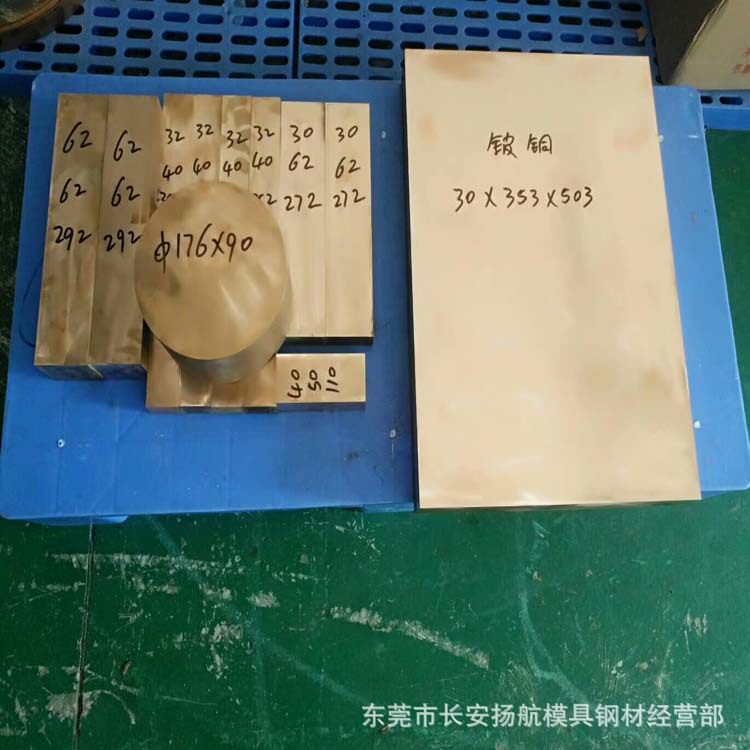 62 62 32 32 32 32 30 30
62 62 40 40 40 40 62 62
292 292 272 272
φ176×90
40
50
110
铍铜
30×353×503
东莞市长安扬航模具钢材经营部